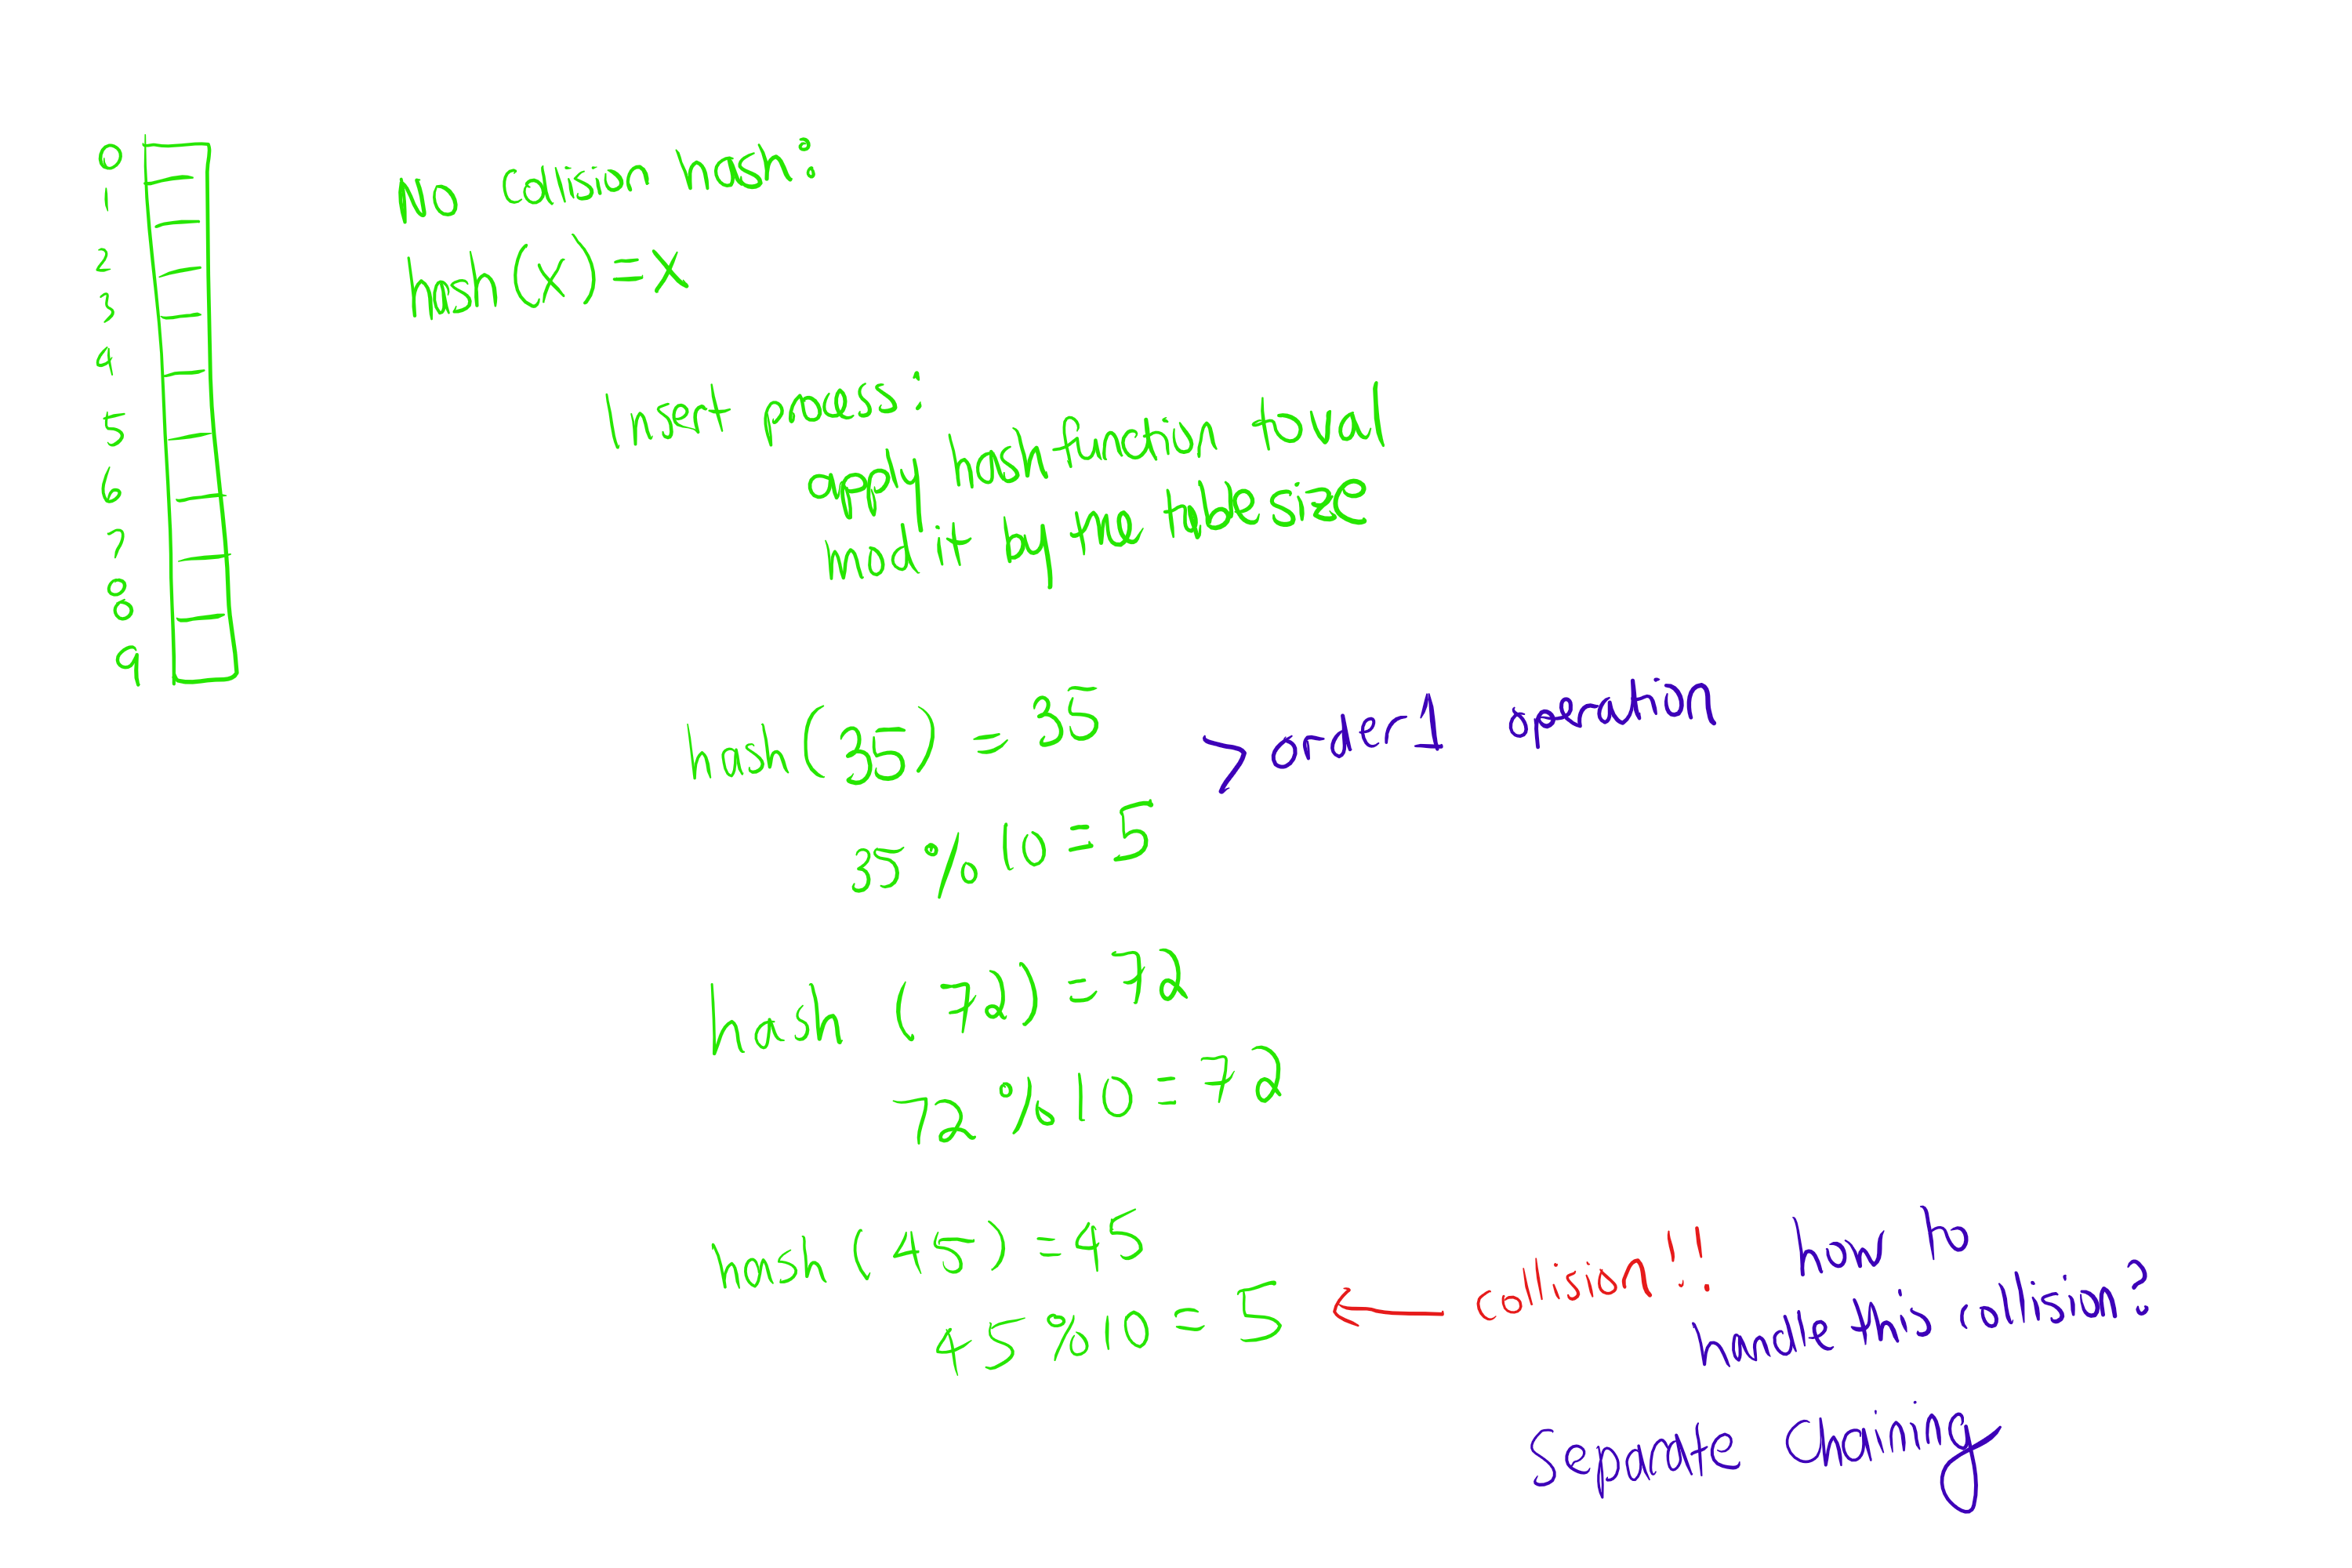 0
1
2
3
4
5
6
7
8
9
No collision hash:
hash(x) = x
Insert process:
apply hash function to val
mod it by the table size
hash(35) = 35
> order 1 operation
35 % 10 = 5
hash (72) = 72
72 % 10 = 72
hash (45) = 45
45 % 10 = 5
← collision!!
how to
handle this collision?
Separate Chaining